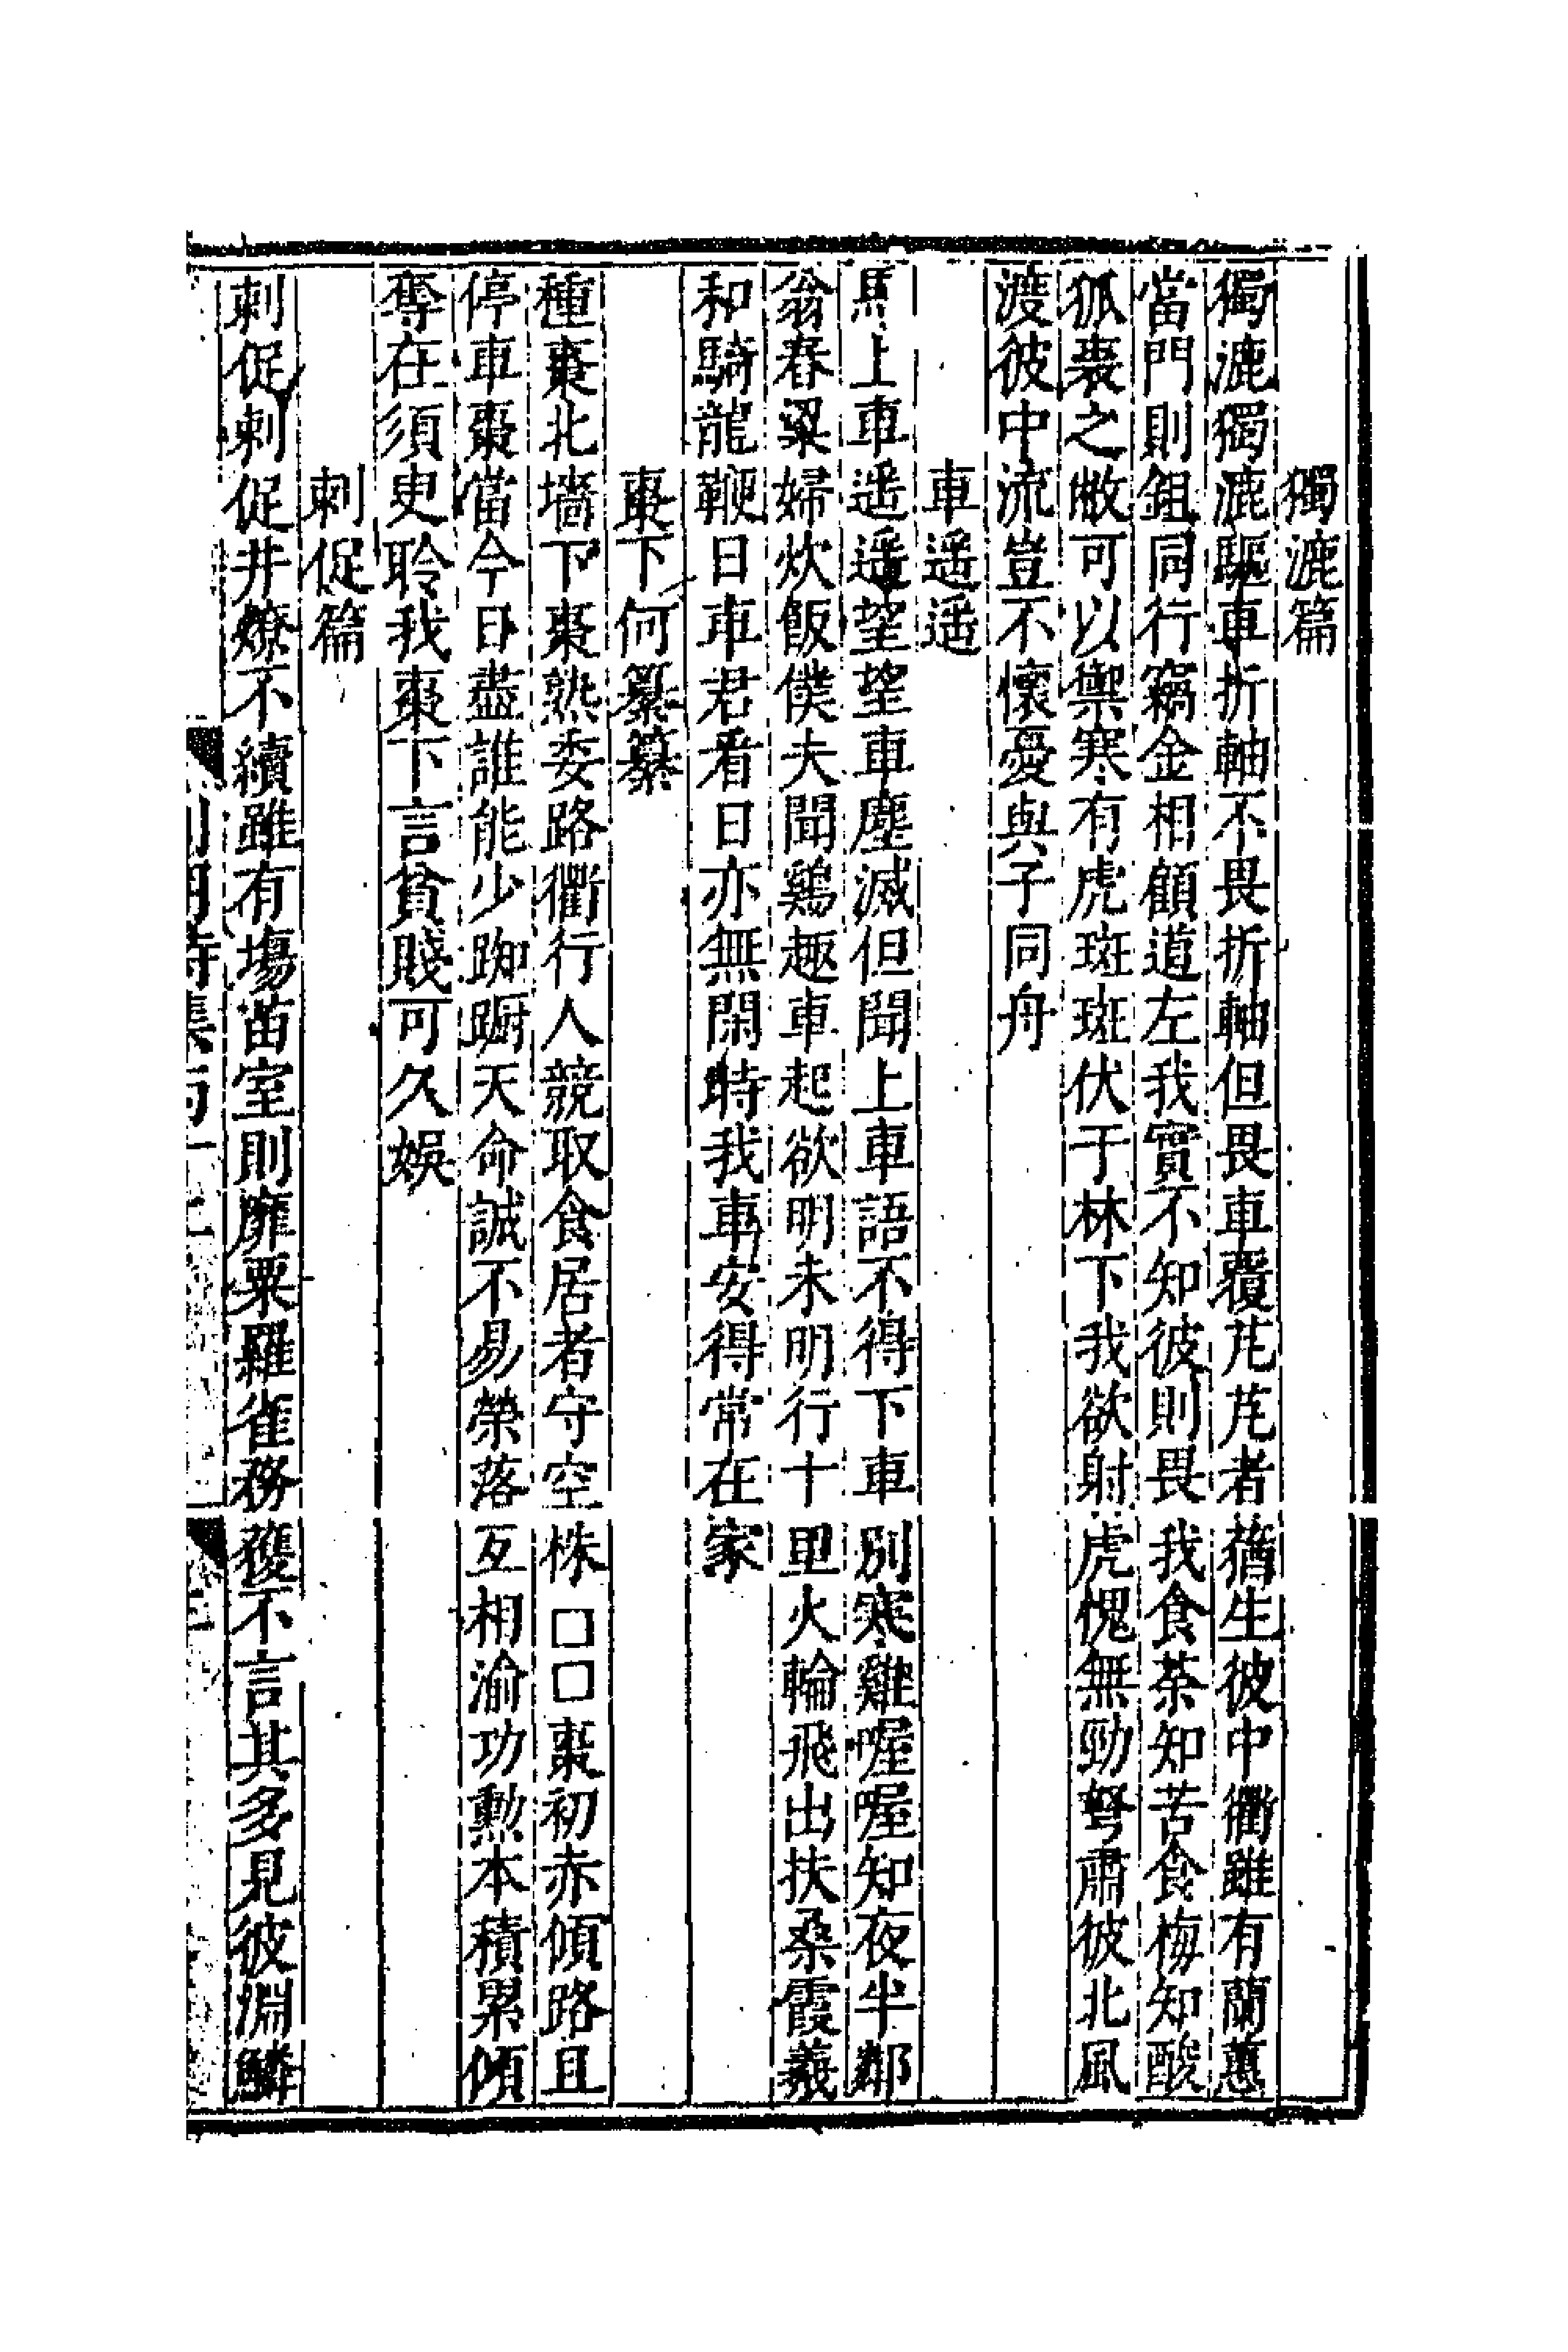 獨漉篇
獨漉獨漉驅車折軸不畏折軸但畏車覆芃芃者蕕生彼中衢雖有蘭蕙
當門則鉏同行竊金相顧道左我實不知彼則畏我食荼知苦食梅知酸
狐裘之敝可以禦寒有虎斑斑伏于林下我欲射虎愧無勁弩肅彼北風
渡彼中流豈不懷憂與子同舟
車遥遥
馬上車遥遥望望車塵滅但聞上車語不得下車別寒雞喔喔知夜半鄰
翁舂粱婦炊飯僕夫聞鷄趣車起欲明未明行十里火輪飛出扶桑霞羲
和騎龍鞭日車君看日亦無閑時我車安得常在家
棗下何纂纂
種棗北墻下棗熟委路衢行人競取食居者守空株□□棗初赤傾路且
停車棗當今日盡誰能少踟蹰天命誠不易榮落互相渝功勲本積累傾
奪在須臾聆我棗下言貧賤可久娛
刺促篇
刺促刺促井燎不續雖有塲苗室則靡粟羅雀務獲不言其多見彼淵鱗